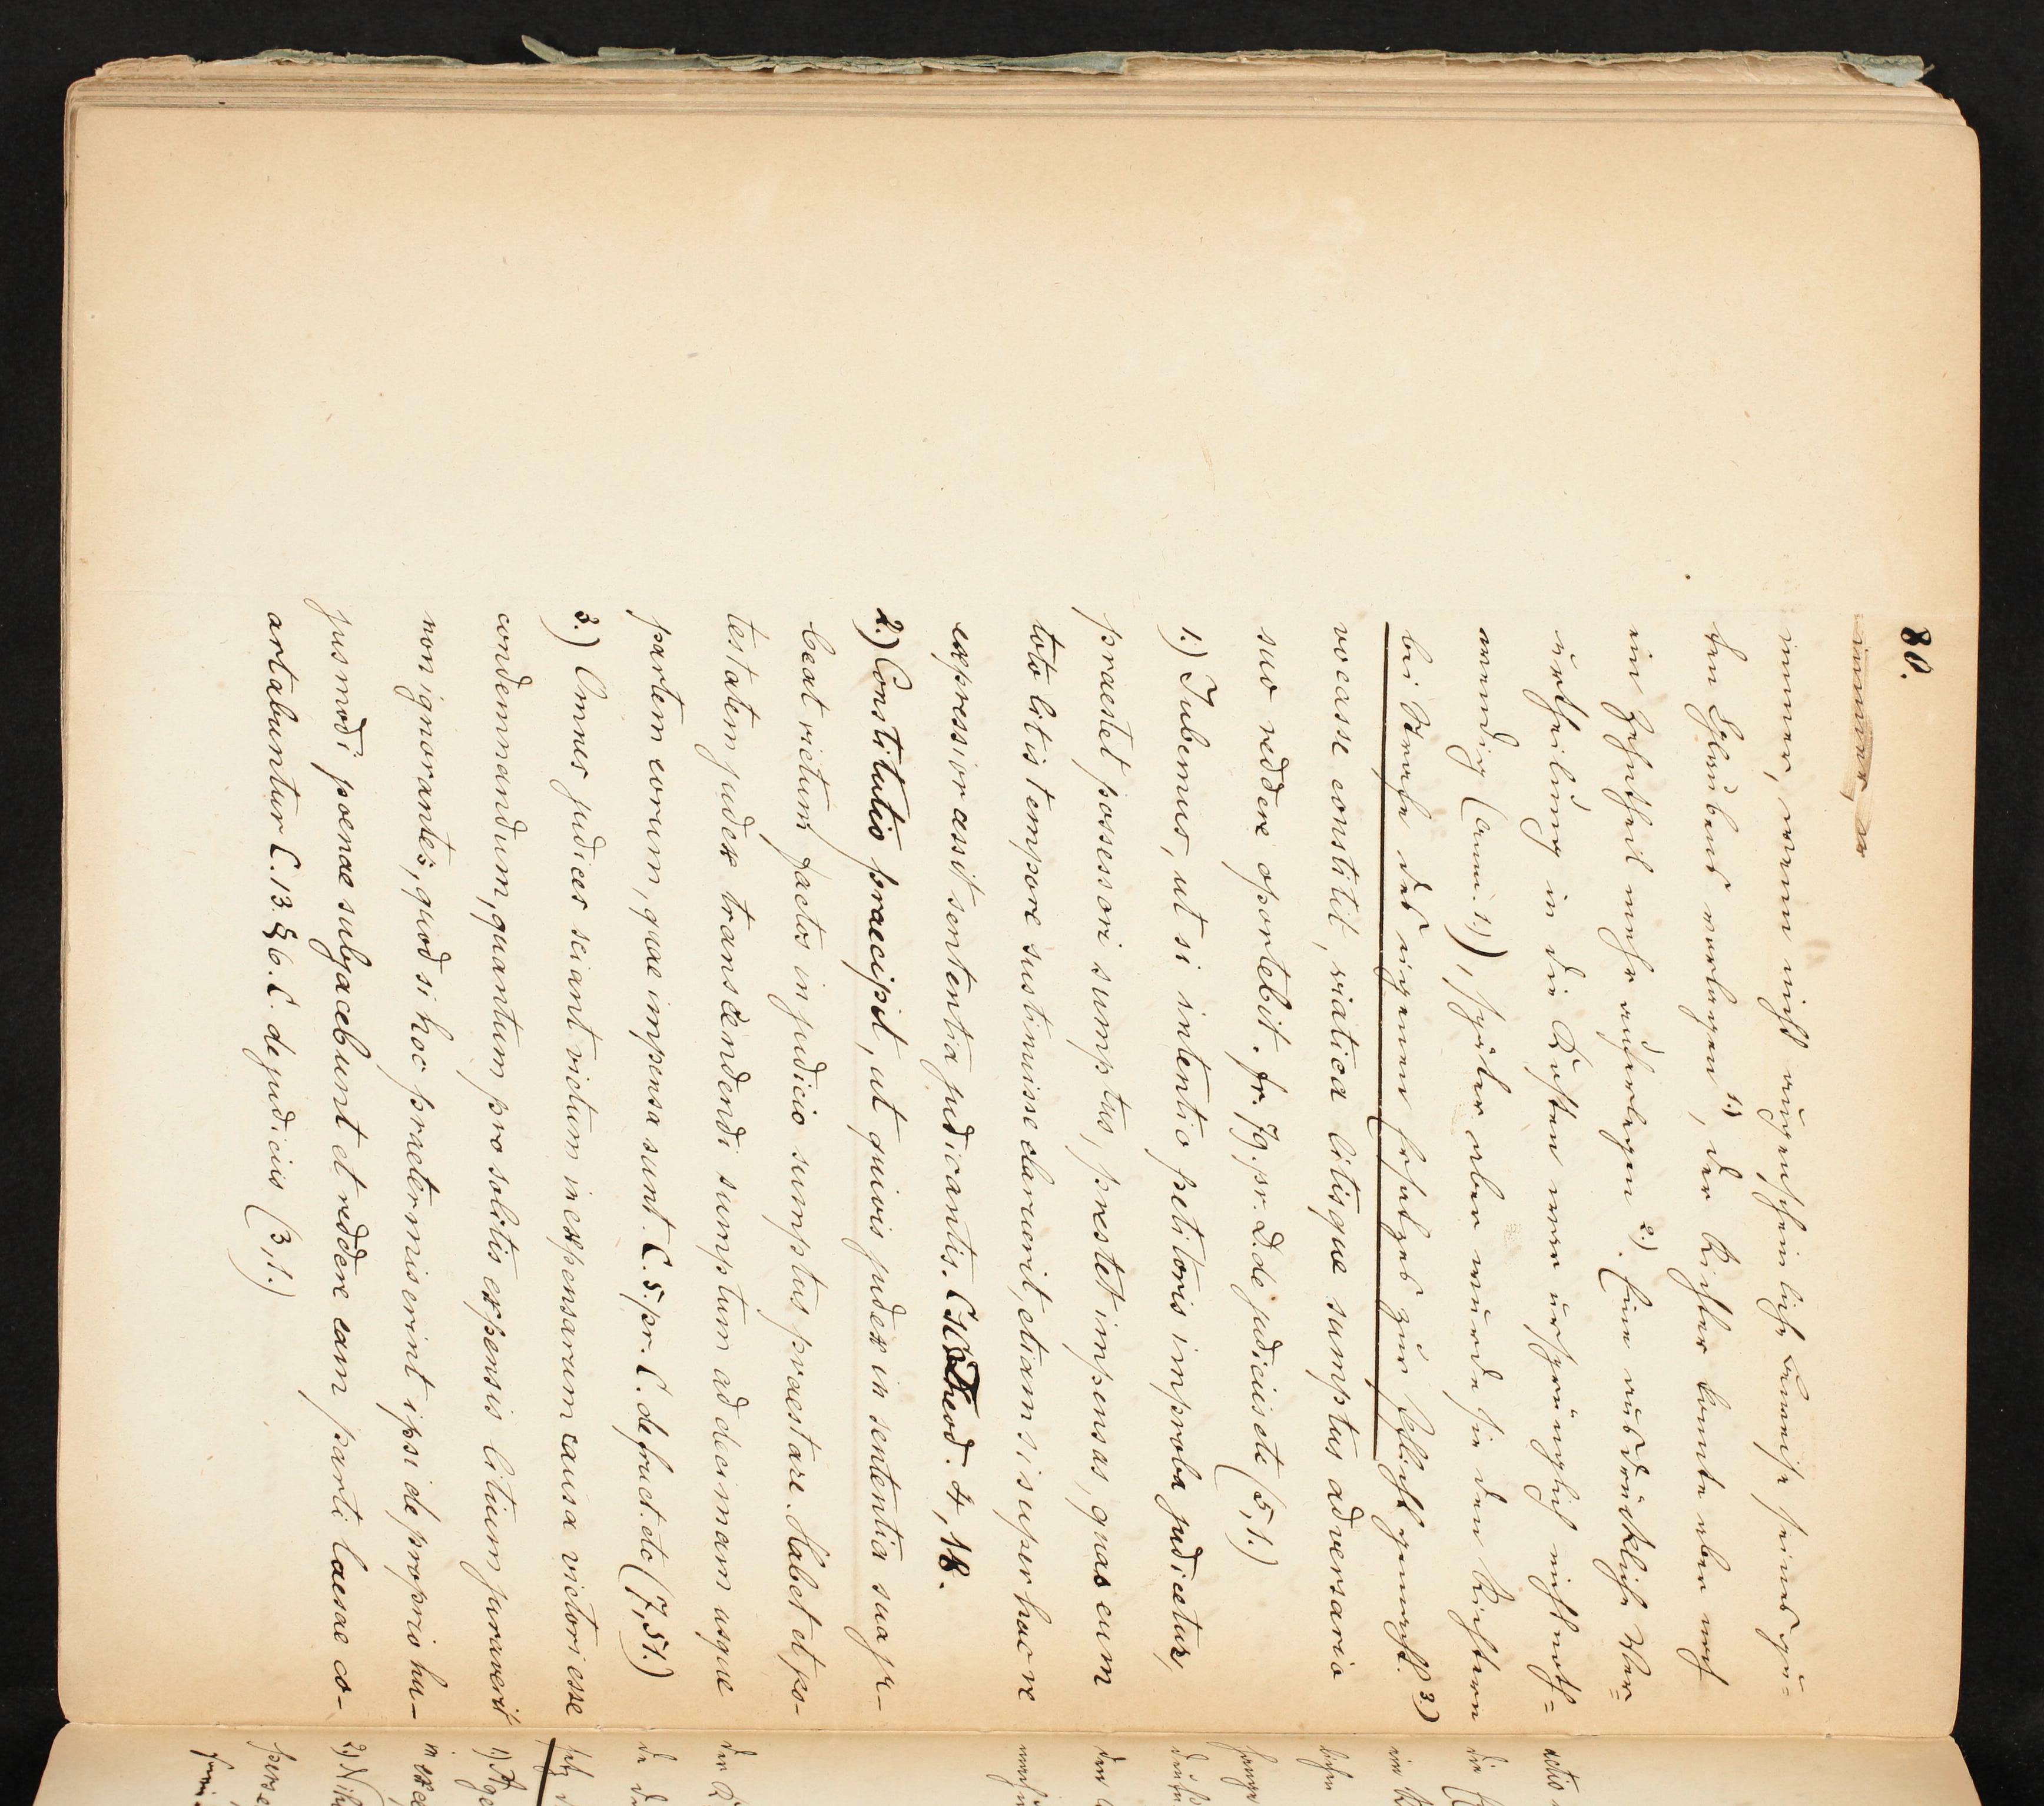 80.
immer, er
immer, wenn nicht augenscheinliche Beweise seines gu=
ten Glaubens vorlagen 1), der Richter konnte aber noch
ein Zehntheil mehr auferlegen 2.). Eine ausdrückliche Ver=
urtheilung in die Kosten war ursprünglich nicht noth=
wendig (anm. 1.), später aber wurde sie den Richtern
bei Strafe des eigenen Ersatzes zur Pflicht gemacht. 3.)
vocasse constitit, viatica litisque sumptus adversario
suo reddere oportebit. fr. 79. pr. D. de judiciis etc (5,1.)
1.) Jubemus, ut si intentio petitoris improba judicetur,
praestet possessori sumptus, prestet impensas, quas eum
toto litis tempore sustinuisse claruerit, etiamsi super hac re
expressior assit sententia judicantis. Theod. 4, 18.
2.) Constitutio praecipit, ut quivis judex in sententia sua ju-
beat victum factos in judicio sumptus praestare. Habet et po-
testatem judex transcendendi sumptum ad decimam usque
partem eorum, quae impensa sunt. C. 5. pr. C. de fruct. etc (7,51.)
3.) Omnes judices sciant victum in expensarum causa victori esse
condemnandum, quantum pro solitis expensis litium juraverit
non ignorantes, quod si hoc praetermiserint ipsi de proprio hu-
jusmodi poenae subjacebunt et reddere eam parti laesae co-
artabuntur C. 13. § 6. C. de judiciis (3,1.)